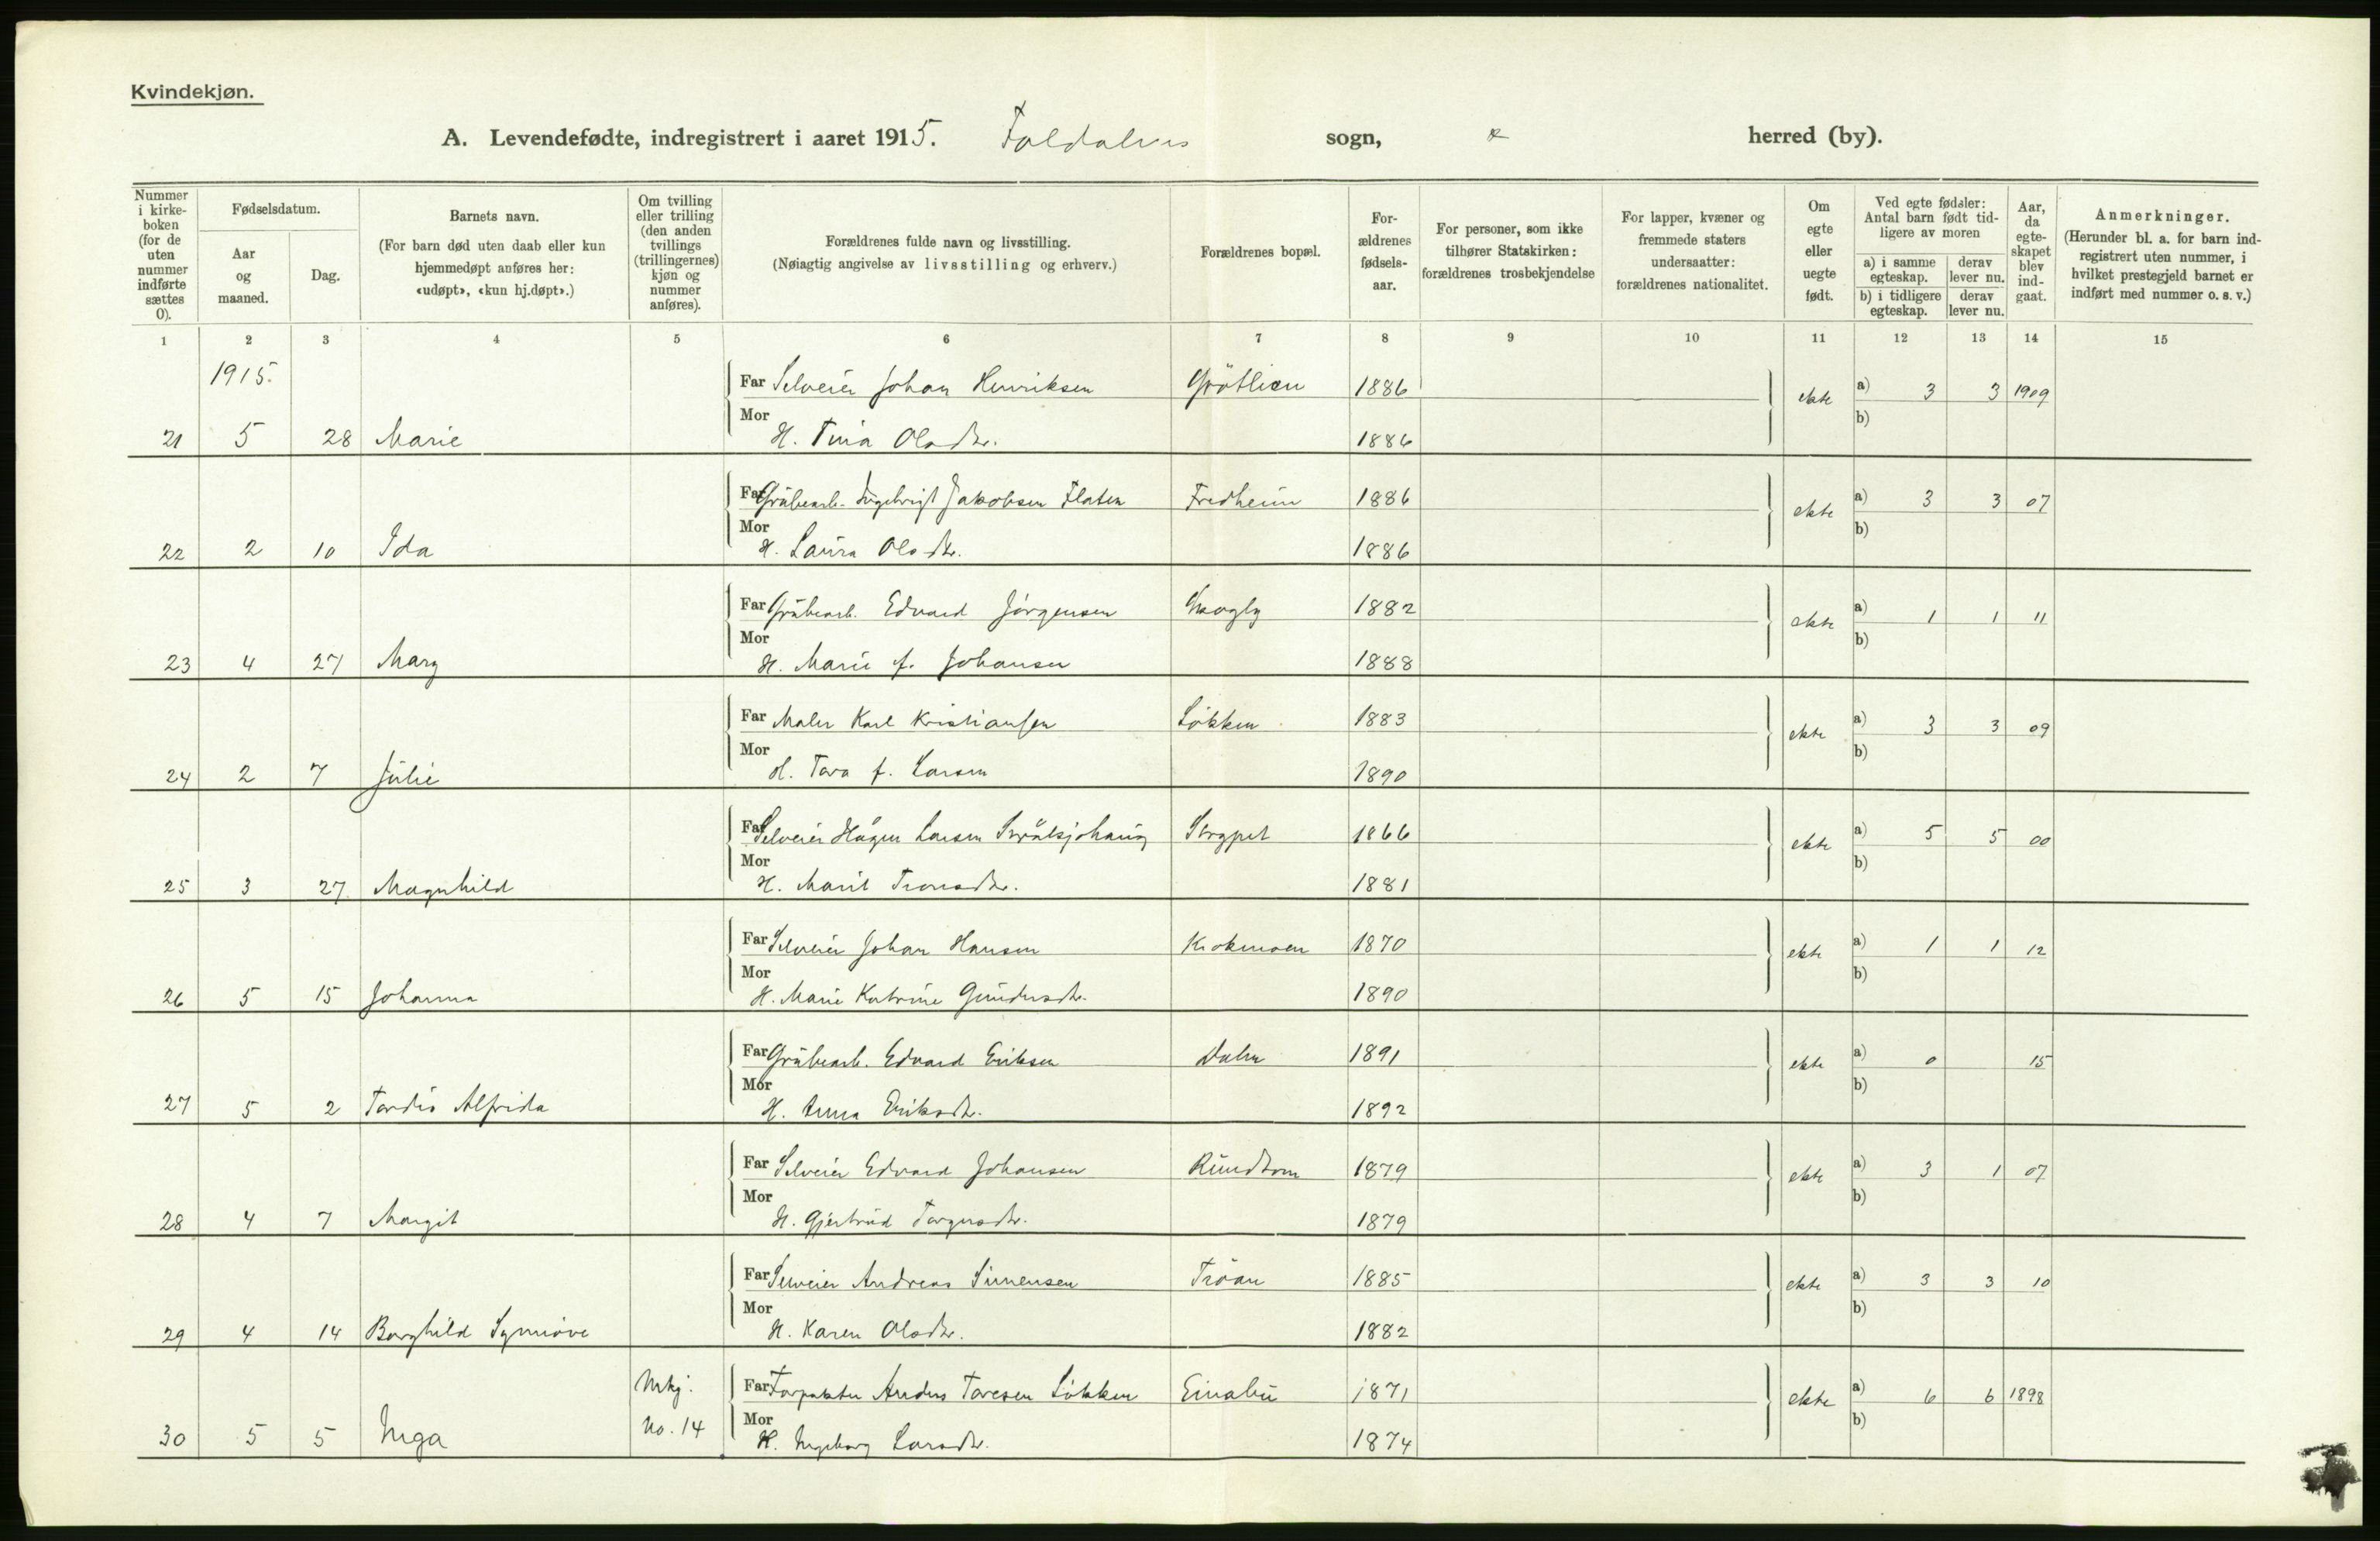 Kvindekjøn.
A. Levendefødte, indregistrert i aaret 1915. Foldalens sogn, herred (by).
Nummer i kirkeboken (for de uten nummer indførte sættes 0).
Fødselsdatum.
Aar og maaned.
Dag.
Barnets navn.
(For barn død uten daab eller kun hjemmedøpt anføres her: «udøpt», «kun hj.døpt».)
Om tvilling eller trilling (den anden tvillings (trillingernes) kjøn og nummer anføres).
Forældrenes fulde navn og livsstilling.
(Nøiagtig angivelse av livsstilling og erhverv.)
Forældrenes bopæl.
For-ældrenes fødsels-aar.
For personer, som ikke tilhører Statskirken: forældrenes trosbekjendelse
For lapper, kvæner og fremmede staters undersaatter: forældrenes nationalitet.
Om egte eller uegte født.
Ved egte fødsler: Antal barn født tidligere av moren
a) i samme egteskap. derav lever nu.
b) i tidligere egteskap. derav lever nu.
Aar, da egteskapet blev indgaat.
Anmerkninger.
(Herunder bl. a. for barn indregistrert uten nummer, i hvilket prestegjeld barnet er indført med nummer o. s. v.)
1 2 3 4 5 6 7 8 9 10 11 12 13 14 15
1915.
Far Selveier Johan Henriksen Grötlien 1886 ekte a) 3 3 1909
Mor b)
21 5 28 Marie H. Tina Olsdtr. 1886
Far Grübearb. Ingebrigt Jakobsen Flaten Fredheim 1886 ekte a) 3 3 07
Mor b)
22 2 10 Ida H. Laura Olsdtr. 1886
Far Grübearb. Edvard Jörgensen Skogly 1882 ekte a) 1 1 11
Mor b)
23 4 27 Mary H. Marie f. Johansen 1888
Far Maler Karl Kristiansen Lökken 1883 ekte a) 3 3 09
Mor b)
24 2 7 Julie H. Tora f. Larsen 1890
Far Selveier Hågen Larsen Streitkjohaug 1866 ekte a) 5 5 00
Mor b)
25 3 27 Magnhild H. Marit Tronsdtr. 1881
Far Selveier Johan Hansen Krokmoen 1870 ekte a) 1 1 12
Mor b)
26 5 15 Johanna H. Marie Katrine Gundersdtr. 1890
Far Grübearb. Edvard Eriksen Dalen 1891 ekte a) 0 15
Mor b)
27 5 2 Tordis Alfrida H. Anna Eriksdtr. 1892
Far Selveier Edvard Johansen Rundtom 1879 ekte a) 3 1 07
Mor b)
28 4 7 Margit H. Gjertrud Torgersdtr. 1879
Far Selveier Andreas Simensen Tröan 1885 ekte a) 3 3 10
Mor b)
29 4 14 Borghild Synnöve H. Karen Olsdtr. 1882
Mkj. Far Forpakter Anders Toresen Lökken Einabu 1871 ekte a) 6 6 1898
No. 14 Mor b)
30 5 5 Inga H. Ingeborg Larsdtr. 1874